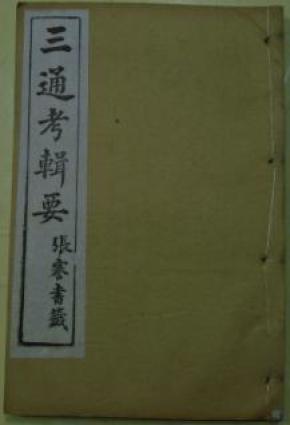 三通考輯要
張謇書籤